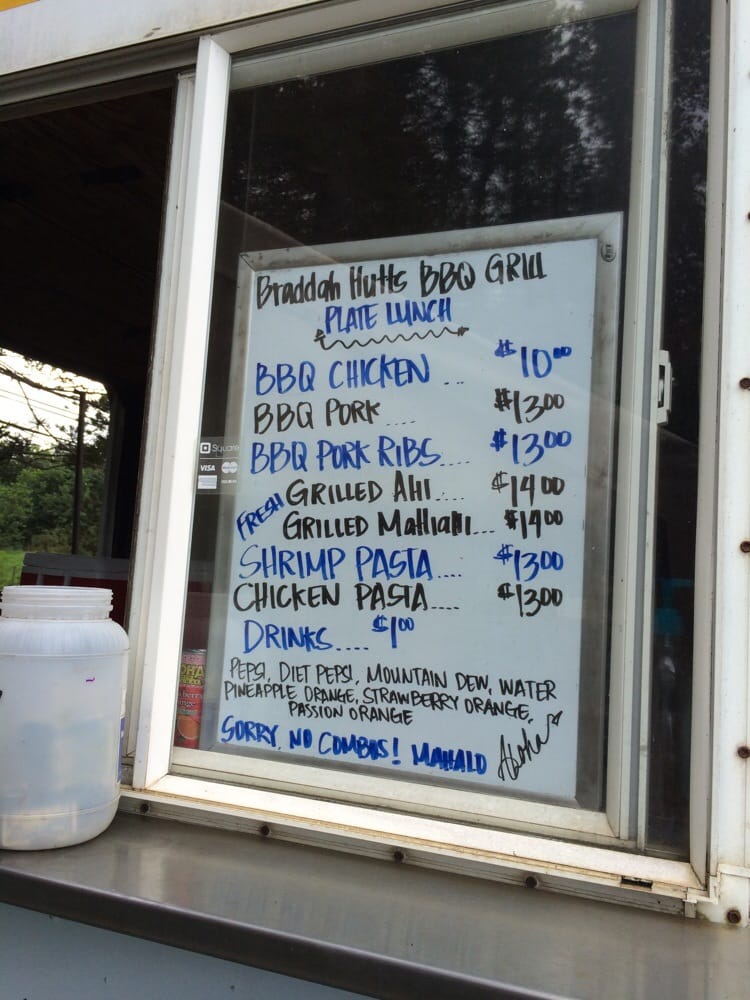 Braddah Hutts BBQ GRILL
PLATE LUNCH
BBQ CHICKEN ... $10.00
BBQ PORK .... $13.00
BBQ PORK RIBS.... $13.00
FRESH
GRILLED AHI .... $14.00
GRILLED MaHiaHi... $14.00
SHRIMP PASTA.... $13.00
CHICKEN PASTA.... $13.00
DRINKS.... $1.00
PEPSI, DIET PEPSI, MOUNTAIN DEW, WATER
PINEAPPLE ORANGE, STRAWBERRY ORANGE,
PASSION ORANGE
SORRY, NO COMBOS! MAHALO Aloha
Square
VISA